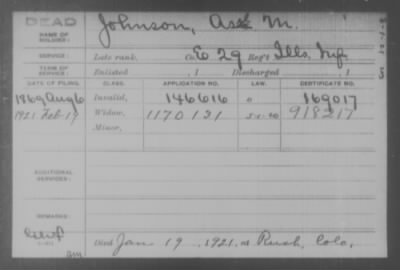 DEAD
NAME OF SOLDIER: Johnson, Asa M.
SERVICE: Late rank, Co. E 29 Reg't Ills. Inf.
TERM OF SERVICE: Enlisted , 1 Discharged , 1
DATE OF FILING. CLASS. APPLICATION NO. LAW. CERTIFICATE NO.
1869 Aug 6 Invalid, 146616 169017
1921 Feb 17 Widow, 1170131 918217
Minor,
ADDITIONAL SERVICES:
REMARKS:
Died Jan 19, 1921, at Rush, Colo.